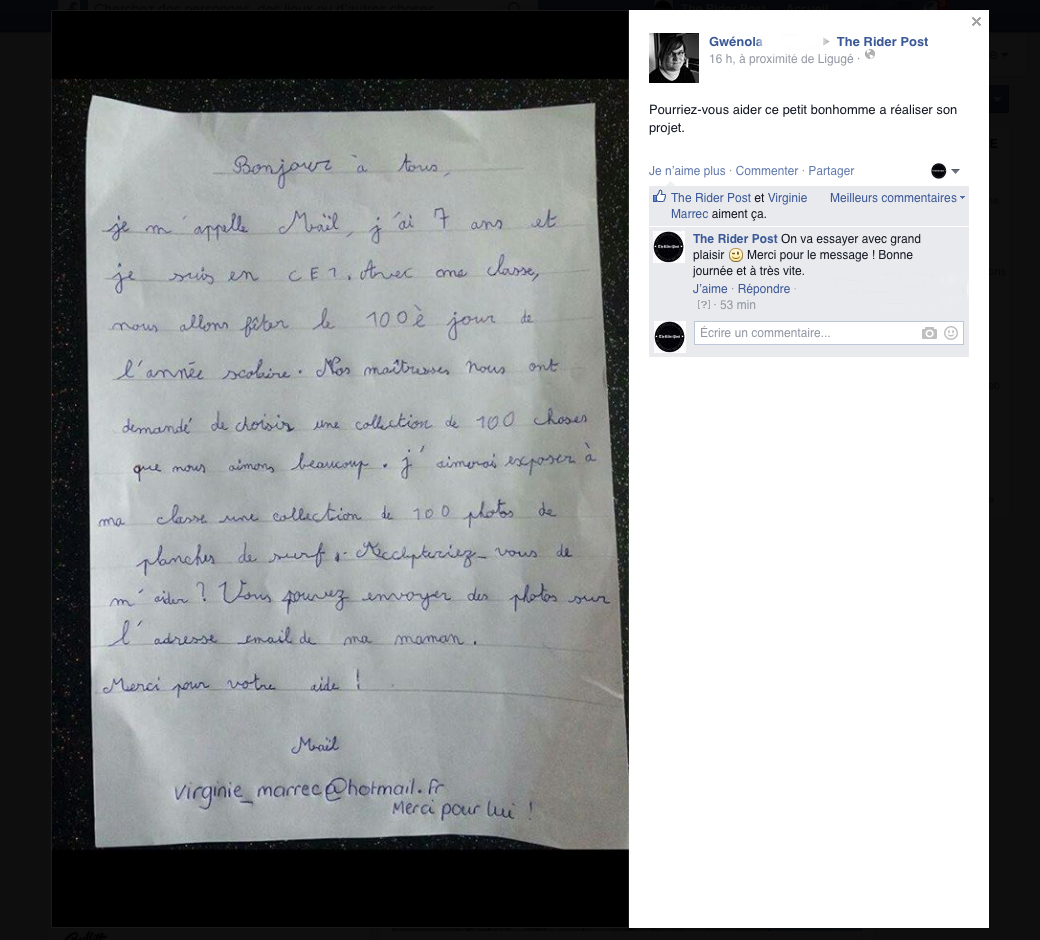 Bonjour à tous,
je m'appelle Maïl, j'ai 7 ans et
je suis en CE1. Avec ma classe,
nous allons fêter le 100è jour de
l'année scolaire. Nos maîtresses nous ont
demandé de choisir une collection de 100 choses
que nous aimons beaucoup. j'aimerai exposer à
ma classe une collection de 100 photos de
planches de surf. Accepteriez-vous de
m'aider ? Vous pouvez envoyer des photos sur
l'adresse email de ma maman.
Merci pour votre aide !
Maïl
virginie_marrec@hotmail.fr
Merci pour lui !
Gwénola ▶ The Rider Post
16 h, à proximité de Ligugé ·
Pourriez-vous aider ce petit bonhomme a réaliser son
projet.
Je n'aime plus · Commenter · Partager
The Rider Post et Virginie
Marrec aiment ça.
Meilleurs commentaires
The Rider Post On va essayer avec grand
plaisir 🙂 Merci pour le message ! Bonne
journée et à très vite.
J'aime · Répondre ·
[?] · 53 min
Écrire un commentaire...